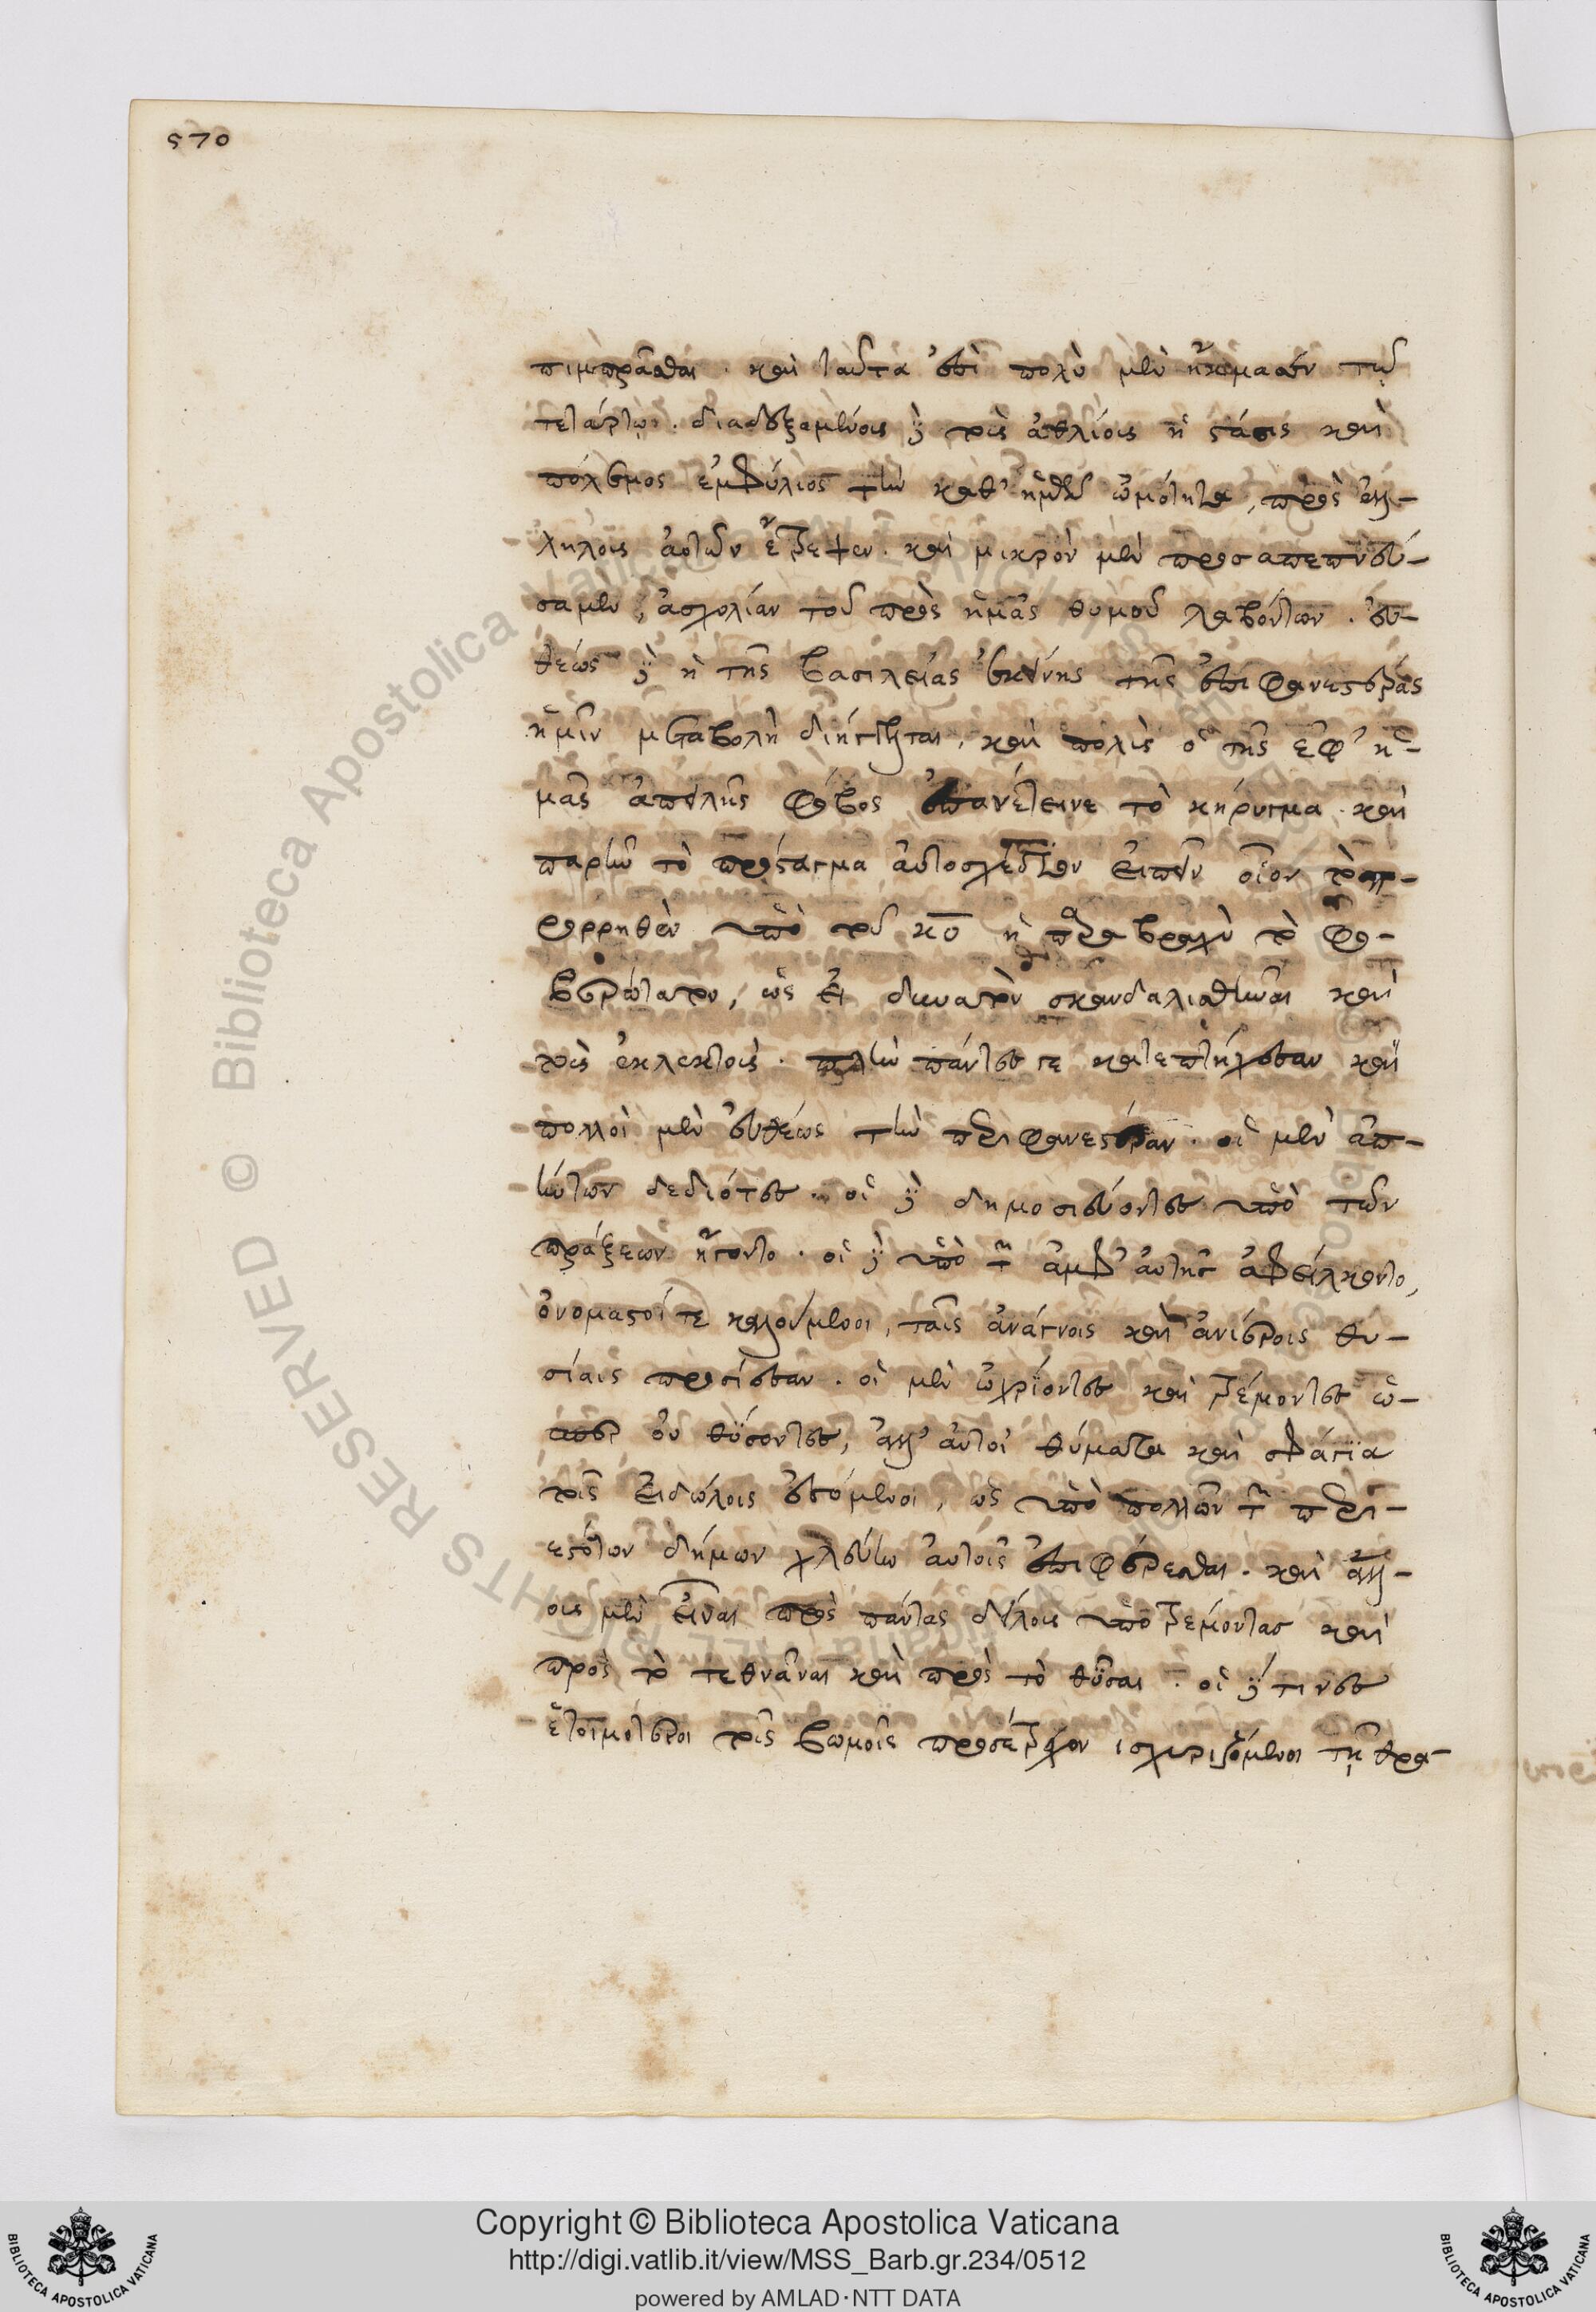 570
πίμπρασθαι. καὶ ταῦτα ἐπὶ πολὺ μὲν ἤκμασεν τῷ
τετάρτῳ. διαδεξαμένοις δὲ τοῖς ἀθλίοις ἡ στάσις καὶ
πόλεμος ἐμφύλιος τὴν καθ' ἡμῶν ὠμότητα, πρὸς ἀλ-
λήλοις αὐτῶν ἔτρεψεν. καὶ μικρὸν μὲν προσαπεπνεύ-
σαμεν, ἀσχολίαν τοῦ πρὸς ἡμᾶς θυμοῦ λαβόντων. εὐ-
θέως δὲ ἡ τῆς βασιλείας ἐκείνης τῆς ἐπιφανεστέρας
ἡμῖν μεταβολὴ διήγγελται. καὶ πολὺς ὁ τῆς ἐφ' ἡ-
μᾶς ἀπειλῆς φόβος ἐπανέτεινε τὸ κήρυγμα. καὶ
παρῆν τὸ πρόσταγμα αὐτοσχέδιον εἰπεῖν οἷον τὸ
προρρηθὲν ὑπὸ τοῦ κυ ἢ παρα βραχὺ τὸ φο-
βερώτατον, ὡς εἰ δυνατὸν σκανδαλισθῆναι καὶ
τοὺς ἐκλεκτούς. πλὴν πάντες γε κατεπτήχεσαν καὶ
πολλοὶ μὲν εὐθέως τῶν περιφανεστέρων. οἱ μὲν ἀπ-
ήντων δεδιότες. οἱ δὲ δημοσιεύοντες ὑπὸ τῶν
πράξεων ἤγοντο. οἱ δὲ ὑπὸ τῶν ἀμφ' αὐτῆς ἀφείλκοντο,
ὀνομαστοί τε καλούμενοι, ταῖς ἀνάγνοις καὶ ἀνιέροις θυ-
σίαις προσίεσαν. οἱ μὲν ὠχριόντες καὶ τρέμοντες ὥ-
σπερ οὐ θύσοντες, ἀλλ' αὐτοὶ θύματα καὶ σφάγια
τοῖς εἰδώλοις ἐσόμενοι, ὡς ὑπὸ πολλῶν τῶν περι-
εστότων δήμων χλεύην αὐτοῖς ἐπιφέρεσθαι. καὶ ἄλλ-
οις μὲν εἶναι πρὸς πάντας δειλοὺς ὑποτρέμοντας καὶ
πρὸς τὸ τεθνάναι καὶ πρὸς τὸ θῦσαι. οἱ δέ τινες
ἑτοιμότεροι τοῖς βωμοῖς προσέτρεχον ἰσχυριζόμενοι τῇ θρα-
Biblioteca Apostolica Vaticana
Copyright © Biblioteca Apostolica Vaticana
http://digi.vatlib.it/view/MSS_Barb.gr.234/0512
powered by AMLAD·NTT DATA
BIBLIOTECA APOSTOLICA VATICANA
BIBLIOTECA APOSTOLICA VATICANA